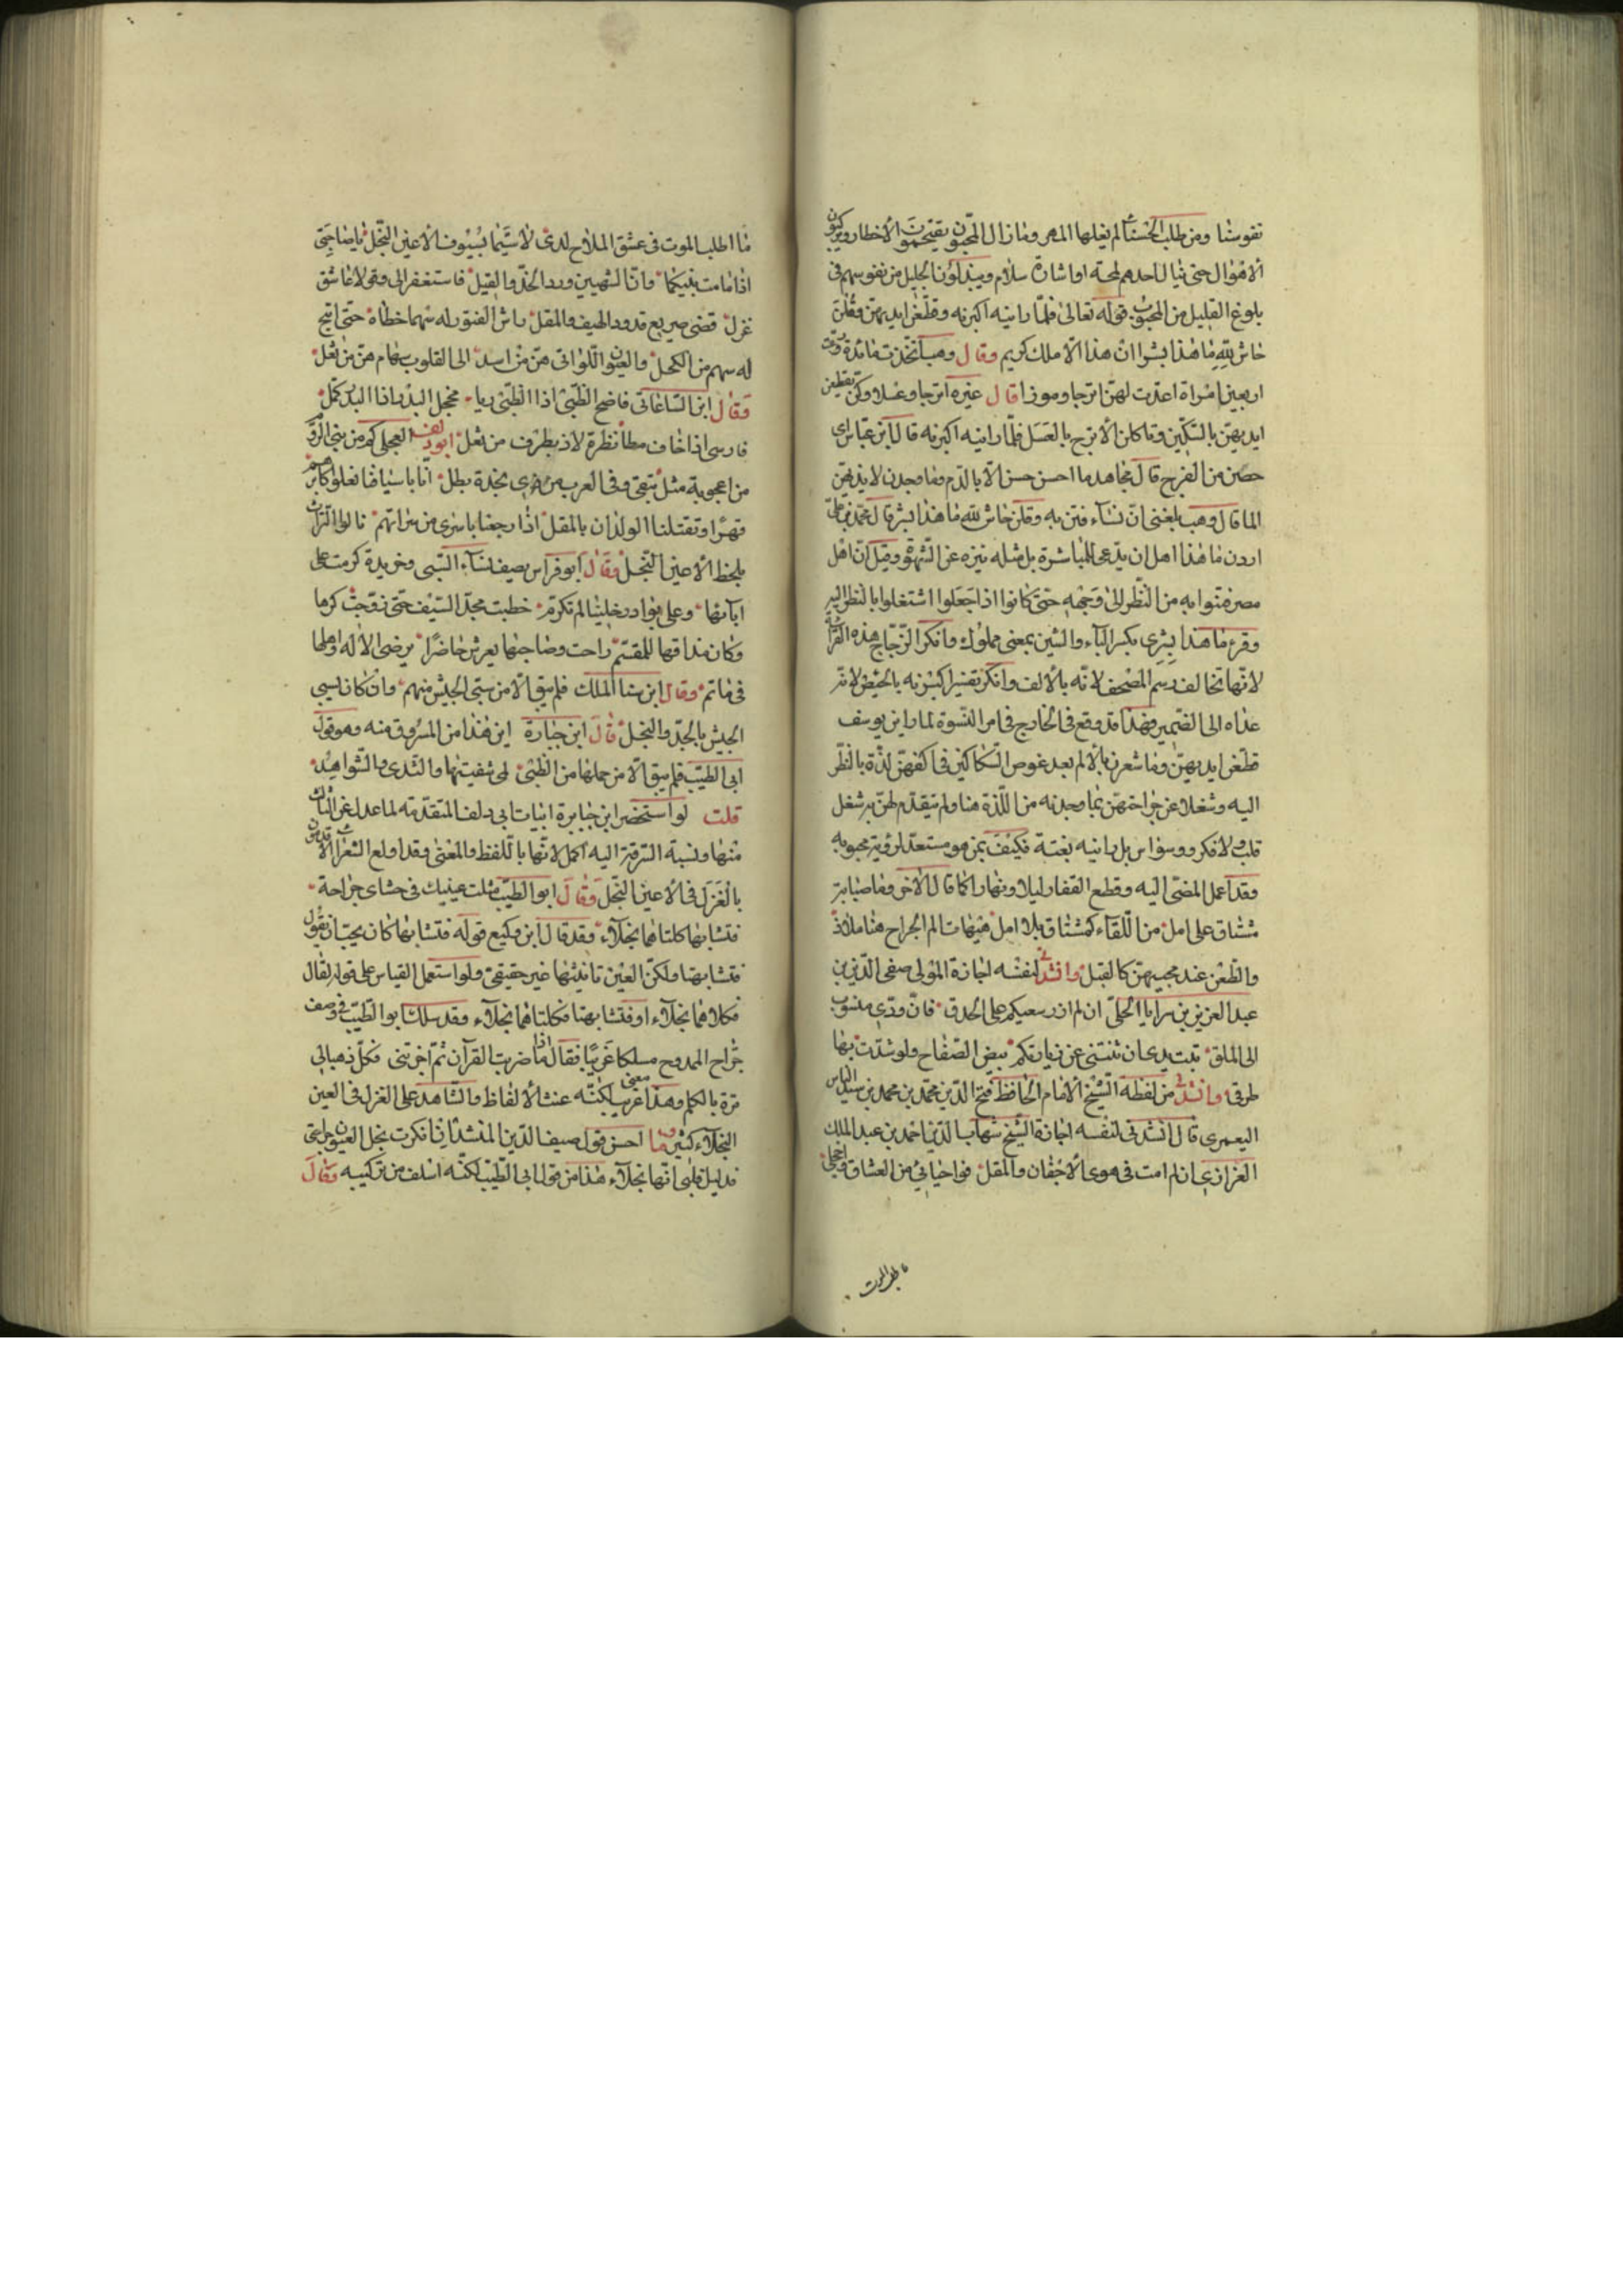 نفوسنا ومن طلب الحسناء لم يغلها المهر وما زال المحبون يقتحمون الأخطار ويركبون
الاهوال حتى ينال احدهم لمحة او اشارة سلام ويبذلون الجليل من نفوسهم في
بلوغ القليل من المحبوب قوله تعالى فلما راينه اكبرنه وقطعن ايديهن وقلن
حاش لله ما هذا بشرا ان هذا الا ملك كريم وقال وهب اتخذت مائدة ودعت
اربعين امراة اعدت لهن اترجا وموزا قال غيره اترجا وعسلا وكن يقطعن
ايديهن بالسكين وياكلن الاترج بالعسل فلما راينه اكبرنه قال ابن عباس اي
حضن من الفرح قال مجاهد ما احسن حسن الا بالدم وما وجدن لايديهن
الما قال وهب بلغني ان نساء فتن به وقلن حاش لله ما هذا بشر قال محمد بن علي
اردن ما هذا اهل ان يدعى للمباشرة بل مثله ينزه عن الشهوة وقيل ان اهل
مصر فتنوا به من النظر الى وجهه حتى كانوا اذا جعلوا اشتغلوا بالنظر اليه
وقرء ما هذا بشرى بكسر الباء والشين بمعنى مملوك وانكر الزجاج هذه القراءة
لانها تخالف رسم المصحف لانه بالالف وانكر تفسير اكبرنه بالحيض لانه
عداه الى الضمير وهذا قد وقع في الخارج في امر النسوة لما راين يوسف
قطعن ايديهن وما شعرن بالالم بعد غوص السكاكين في اكفهن لذة بالنظر
اليه وشغلا عن جراحتهن بما وجدنه من اللذة هنا ولم يتقدم لهن به شغل
قلب ولا فكر ووسواس بل راينه بغتة فكيف بمن هو مستعد لرؤية محبوبه
وقد اعمل المضي اليه وقطع القفار ليلا ونهارا كما قال الاخر وما صبابة
مشتاق على امل من اللقاء كمشتاق بلا امل هيهات الم الجراح هنا ملاذ
والطعن عند محبيهن كالقبل وانشدني لنفسه اجازة المولى صفي الدين بن
عبد العزيز بن سرايا الحلي ان لم ازر سعيكم على الحدق فان ودي منسوب
الى الملق تبت يدي ان ثنتني عن زيارتكم بيض الصفاح ولو شدت بها
طرقي وانشدني من لفظه الشيخ الامام الحافظ فتح الدين محمد بن محمد بن سيد الناس
اليعمري قال انشدني لنفسه اجازة الشيخ شهاب الدين احمد بن عبد الملك
العزازي ان لم امت في هوى الاجفان والمقل فواحيائي من العشاق واخجلي
ما اطلب الموت
ما اطلب الموت في عشق الملاح لدى لا سيما بسيوف الاعين النجل يا صاحبي
اذا ما مت بينكما واننا لشهيين ورد الخد والقبل فاستغفرا لي وقولا عاشق
غزل قضى صريع قدود الهيف والمقل راش الفتور له سهما خطاه حتى اتيح
له سهم من الكحل والعيون اللواتي هن من اسد الى القلوب سهام هن من ثعل
وقال ابن الساعاتي فاضح الظبي اذا الظبي ريا مخجل البدر اذا البدر كمل
فارسي اذا خاف مطا نظرة لاذ بطرف من ثعل ابو دلف العجلي كم من بني الروم
من اعجوبة مثل تبقى وفي العرب من بخدة بطل انا باسيافنا نعلو اكابرهم
قهرا وتقتلنا الولدان بالمقل اذا رجعنا باسرى من سراتهم نالوا التراث
بلحظ الاعين النجل وقال ابو فراس يصف نساء السبي وخريدة كرمت على
ابائها وعلى بوادر خلينا لم تكرم خطبت بحد السيف حتى زوجت كرما
وكان صداقها للمقسم راحت وصاحبها بعرس حاضرا يرضي الاله واهلها
في ماتم وقال ابن سنا الملك فلم يبق الا من سبى الجيش منهم وان كان يسبي
الجيش بالجد والنجل قال ابن جبارة اين هذا من المسروق منه وهو قول
ابي الطيب فلم يبق الا من حماها من الظبى لمى شفيتها والندى والنواهد
قلت لو استحضر ابن جبارة ابيات ابي دلف المتقدمة لما عدل عن الثاني
منها ونسبة السرقة اليه اكمل لانها باللفظ والمعنى وقد اولع الشعراء الاقدمون
بالغزل في الاعين النجل وقال ابو الطيب مثلت عينيك في حشاي جراحة
فتشابها كلتاهما نجلاء وقد قال ابن وكيع قوله فتشابها كان يجب ان يقول
فتشابهتا ولكن العين تانيثها غير حقيقي ولو استعمل القياس على قوله لقال
فكلاهما نجلاء او فتشابهتا فكلتاهما نجلاء وقد سلك ابو الطيب في وصف
جراح الممدوح مسلكا غريبا فقال ماذا ضربت القرآن ثم اجزتني فكل ذهبا لي
مرة بالكلم وهذا معنى غريب لكنه عنت الالفاظ والشاهد على الغزل في العين
النجلاء كثير وما احسن قول صيف الدين المنشد ان انكرت نجل العيون جراحتي
فدليل قلبي انها نجلاء هذا من قول ابي الطيب لكنه اسلف من تركيبه وقال